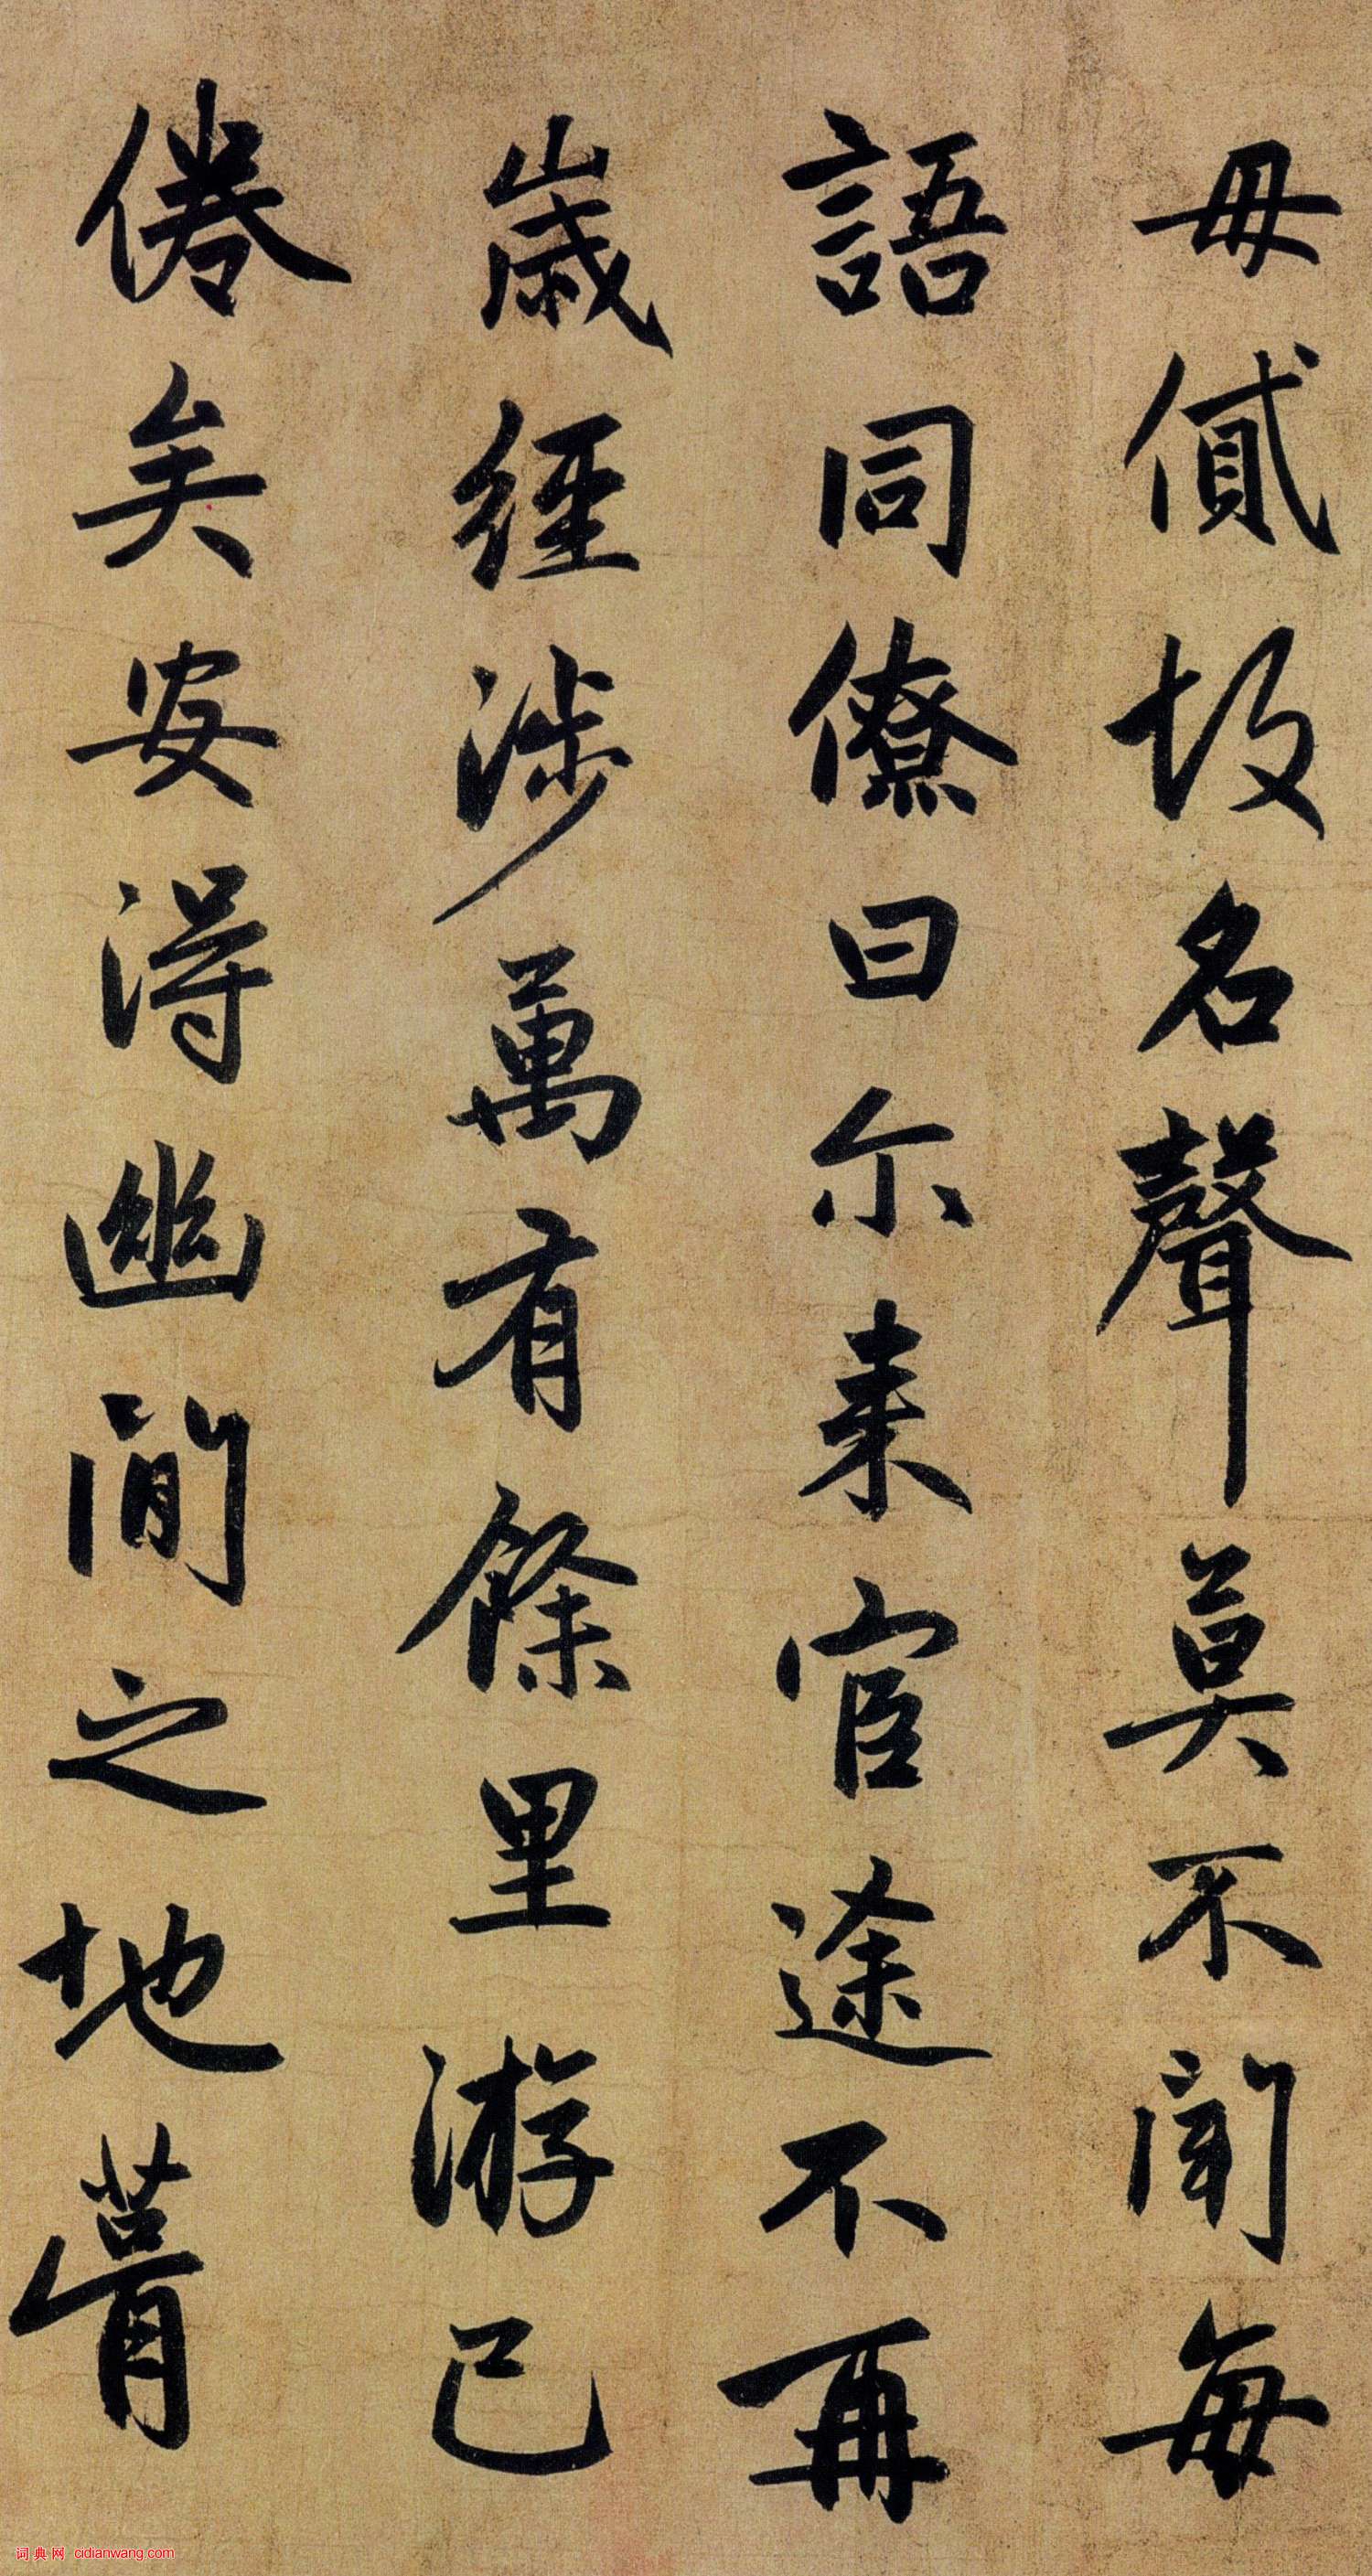 毋貸故名聲莫不聞每
語同僚曰尔来宦途不再
歲經涉萬有餘里游已
倦矣安得幽閒之地
词典网 cidianwang.com